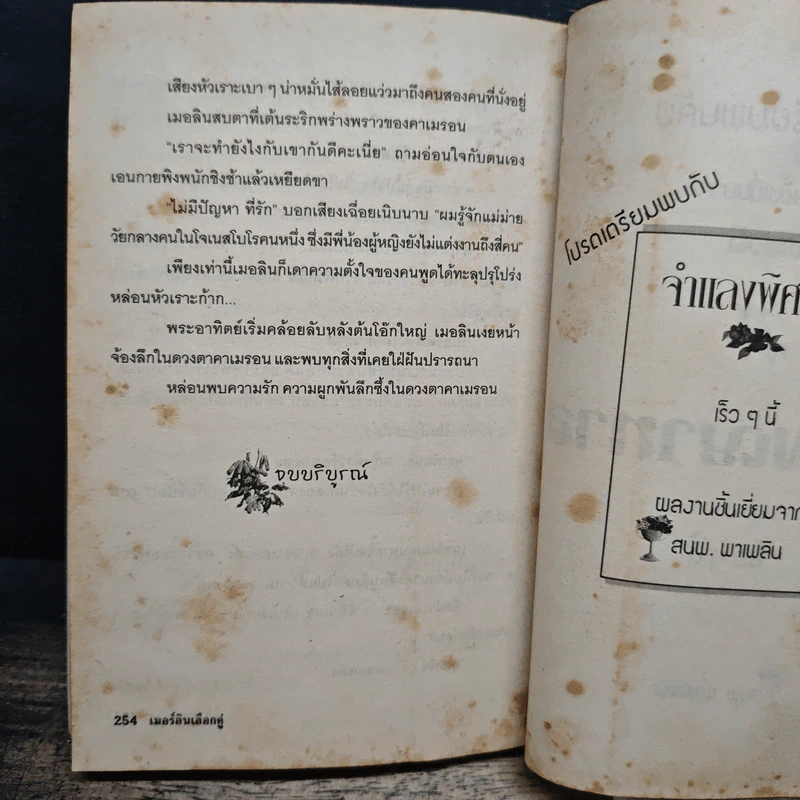 เสียงหัวเราะเบา ๆ น่าหมั่นไส้ลอยแว่วมาถึงคนสองคนที่นั่งอยู่
เมอลินสบตาที่เต้นระริกพร่างพราวของคาเมรอน
"เราจะทำยังไงกับเขากันดีคะเนี่ย" ถามอ่อนใจกับตนเอง
เอนกายพิงพนักชิงช้าแล้วเหยียดขา
"ไม่มีปัญหา ที่รัก" บอกเสียงเฉื่อยเนิบนาบ "ผมรู้จักแม่ม่าย
วัยกลางคนในโจเนสโบโรคนหนึ่ง ซึ่งมีพี่น้องผู้หญิงยังไม่แต่งงานถึงสี่คน"
เพียงเท่านี้เมอลินก็เดาความตั้งใจของคนพูดได้ทะลุปรุโปร่ง
หล่อนหัวเราะก้าก...
พระอาทิตย์เริ่มคล้อยลับหลังต้นโอ๊กใหญ่ เมอลินเงยหน้า
จ้องลึกในดวงตาคาเมรอน และพบทุกสิ่งที่เคยใฝ่ฝันปรารถนา
หล่อนพบความรัก ความผูกพันลึกซึ้งในดวงตาคาเมรอน
จบบริบูรณ์
254 เมอร์ลินเลือกคู่
โปรดเตรียมพบกับ
จำแลงพิศ
เร็ว ๆ นี้
ผลงานชิ้นเยี่ยมจาก
สนพ. พาเพลิน